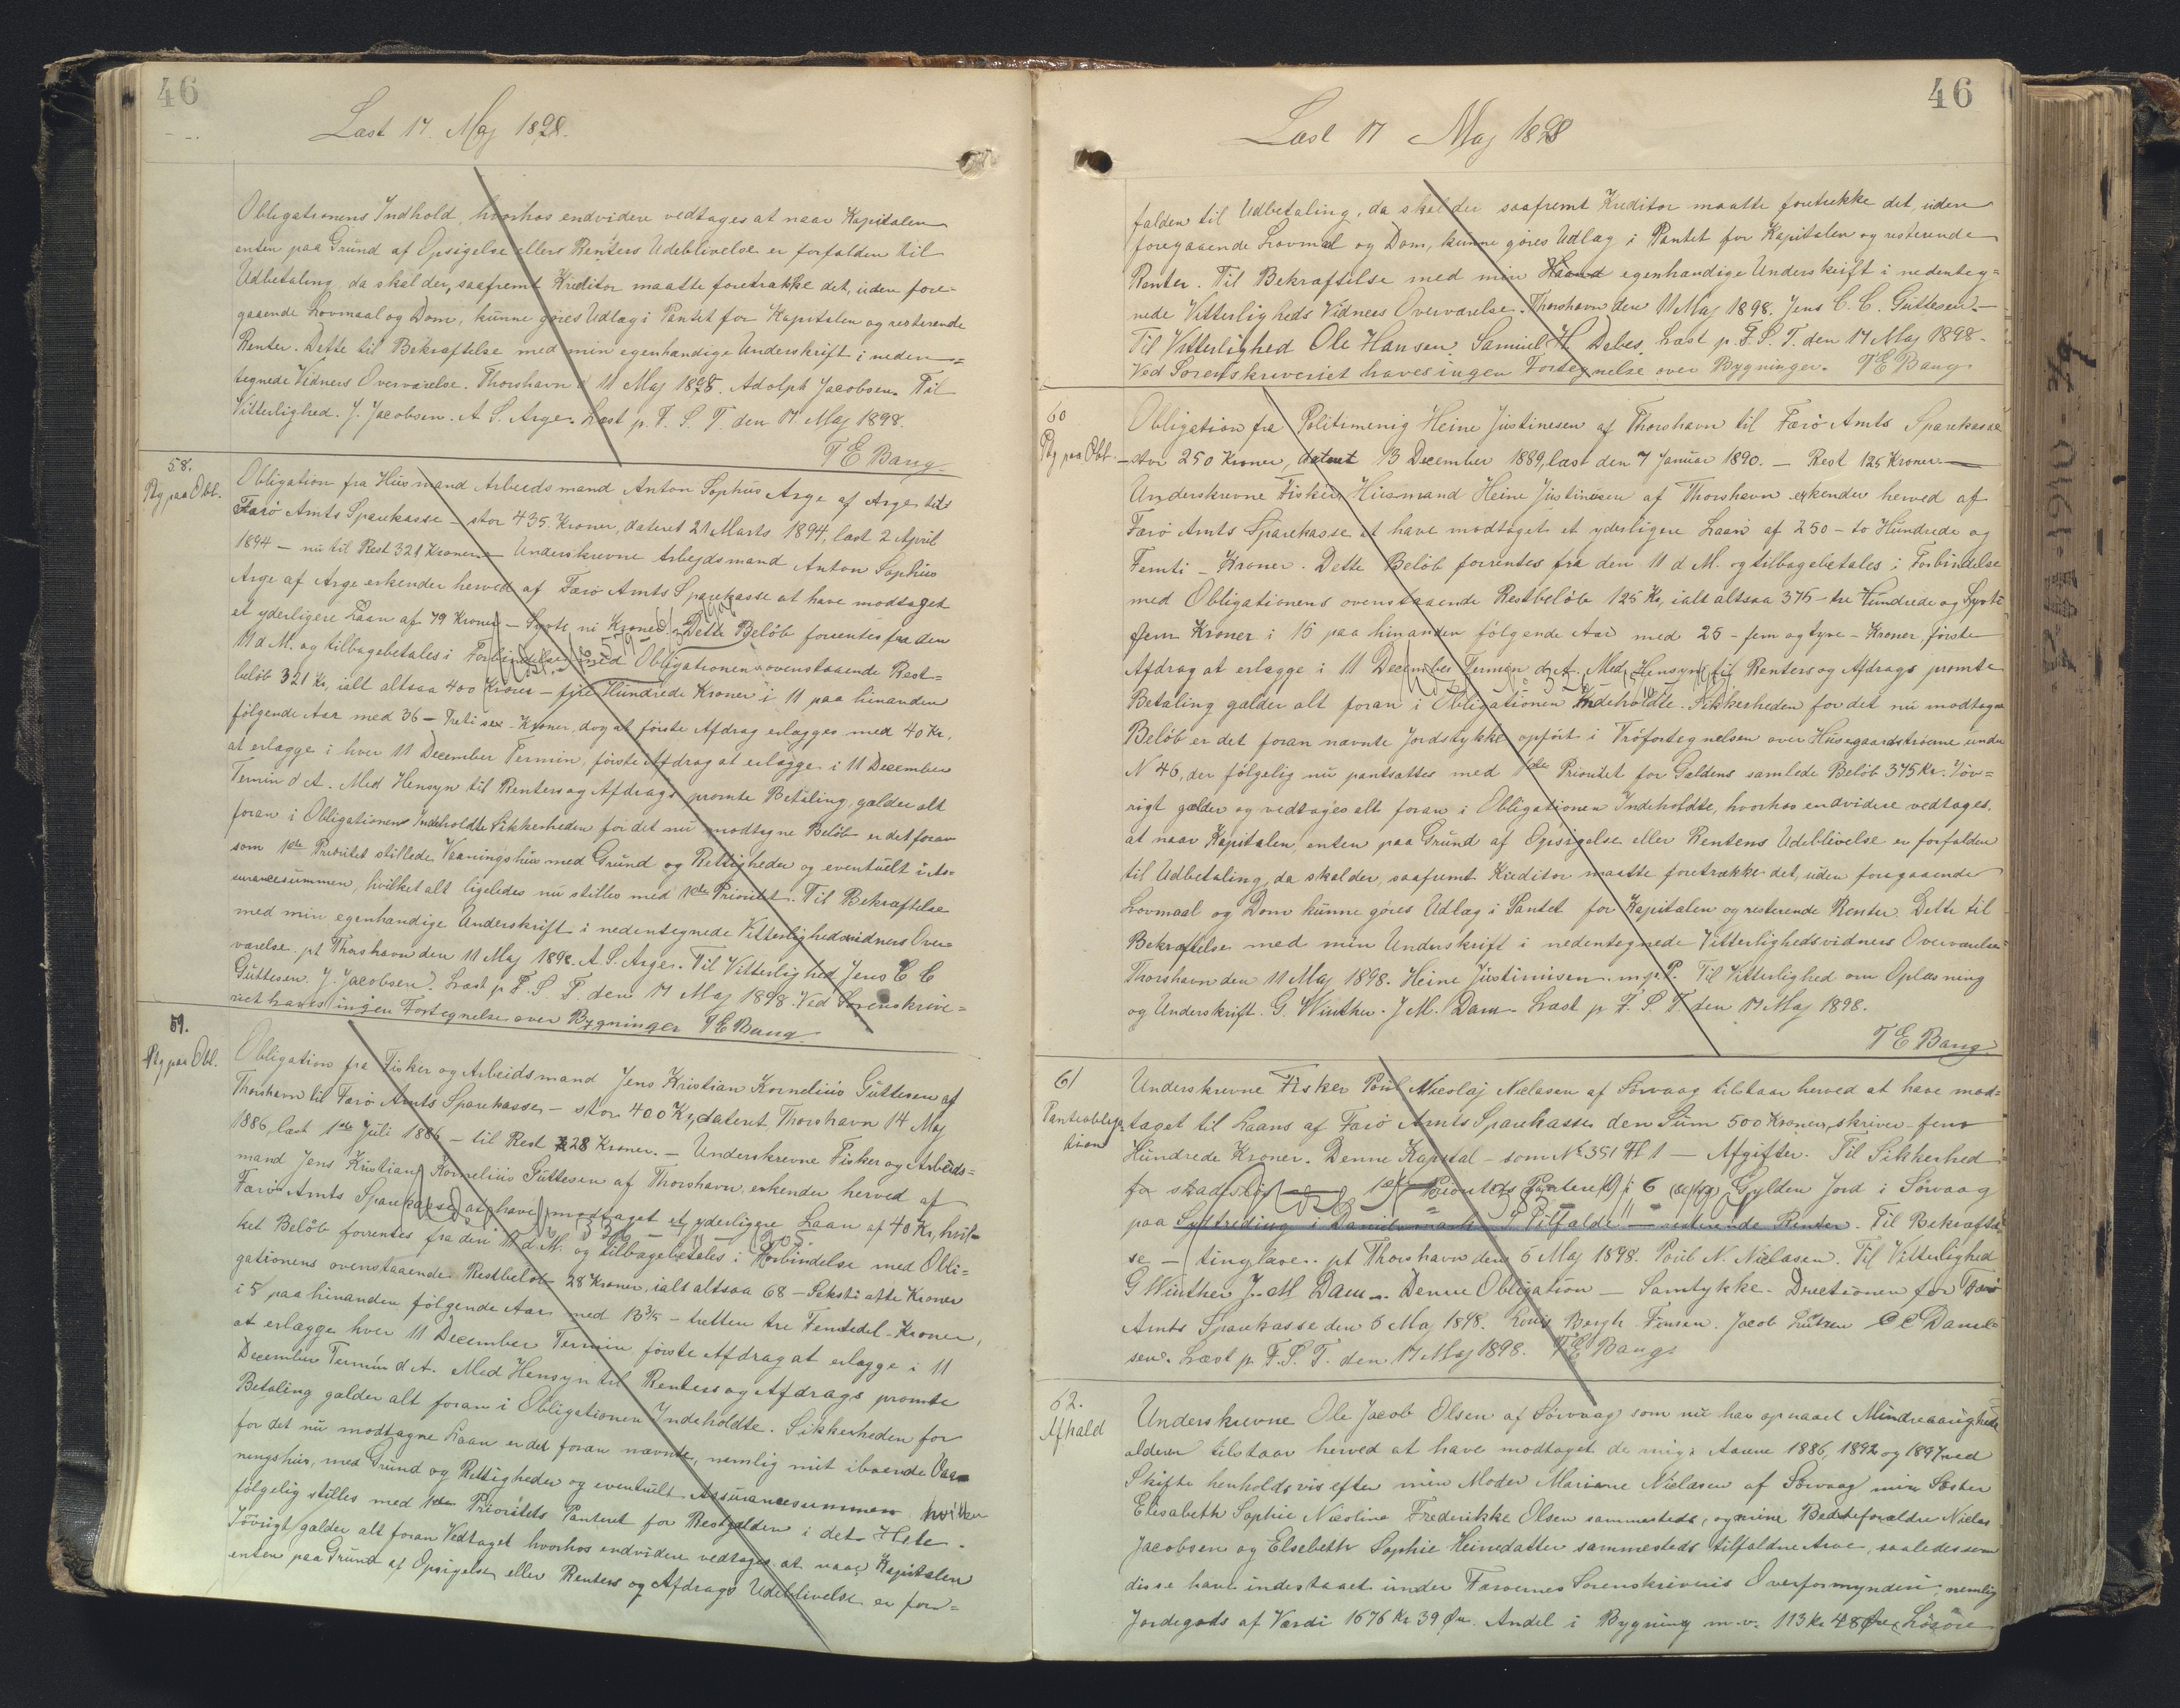 46
Læst 17. Maj 1898.
Obligationens Indhold, hvorhos endvidere vedtages at naar Kapitalen
enten paa Grund af Opsigelse ellers Renters Udeblivelse er forfalden til
Udbetaling, da skal der, saafremt Kreditor maatte foretrække det, uden fore-
gaaende Lovmaal og Dom, kunne gøres Udlæg i Pantet for Kapitalen og resterende
Renter. Dette til Bekræftelse med min egenhændige Underskrift i neden=
tegnede Vidners Overværelse. Thorshavn d 11 Maj 1898. Adolph Jacobsen. Til
Vitterlighed. J. Jacobsen. A S. Arge. Læst p. F. S. T. den 17 Maj 1898.
T E Bang
58.
Ptg paa Obl.
Obligation fra Husmand Arbeidsmand Anton Sophus Arge af Arge til
Færø Amts Sparekasse - stor 435 Kroner, dateret 21 Marts 1894, læst 2 April
1894 - nu til Rest 321 Kroner. - Underskrevne Arbejdsmand Anton Sophus
Arge af Arge erkender herved af Færø Amts Sparekasse at have modtaget
et yderligere Laan af 79 Kroner - Sytti ni Kroner. Dette Beløb forrentes fra den
11 d M. og tilbagebetales i Forbindelse med Obligationens ovenstaaende Rest=
beløb 321 Kr, ialt altsaa 400 Kroner - fire Hundrede Kroner i 11 paa hinanden
følgende Aar med 36 - Treti sex - Kroner, dog at første Afdrag erlægges med 40 Kr.
at erlægge i hver 11 December Termin, første Afdrag at erlægge i 11 December
Termin d A. Med Hensyn til Renters og Afdrags promte Betaling, gælder alt
foran i Obligationens Indeholdte Sikkerheden for det nu modtagne Beløb er det foran
som 1ste Prioritet stillede Vaaningshus med Grund og Rettigheder og eventuelt i As=
surancesummen, hvilket alt ligeledes nu stilles med 1ste Prioritet. Til Bekræftelse
med min egenhændige Underskrift i nedentegnede Vitterlighedsvidners Over=
værelse. pt Thorshavn den 11 Maj 1898. A. S. Arge. Til Vitterlighed Jens C C
Guttesen. J. Jacobsen. Læst p. F. S. T. den 17 Maj 1898. Ved Sorenskrive=
riet haves ingen Fortegnelse over Bygninger T E Bang
59.
Ptg paa Obl.
Obligation fra Fisker og Arbeidsmand Jens Kristian Kornelius Guttesen af
Thorshavn til Færø Amts Sparekasse - stor 400 Kr, dateret Thorshavn 14 Maj
1886, læst 1ste Juli 1886 - til Rest 28 Kroner. - Underskrevne Fisker og Arbeids=
mand Jens Kristian Kornelius Guttesen af Thorshavn, erkender herved af
Færø Amts Sparekasse at have modtaget et yderligere Laan af 40 Kr, hvil=
ket Beløb forrentes fra den 11 d. M. og tilbagebetales i Forbindelse med Obli=
gationens ovenstaaende Restbeløb 28 Kroner, ialt altsaa 68 - Seksti otte Kroner
i 5 paa hinanden følgende Aar med 13 3/5 - tretten tre Femtedel - Kroner,
at erlægge hver 11 December Termin, første Afdrag at erlægge i 11
December Termin d A. Med Hensyn til Renters og Afdrags promte
Betaling gælder alt foran i Obligationen Indeholdte. Sikkerheden for
for det nu modtagne Laan er det foran nævnte, nemlig mit iboende Vaa=
ningshus, med Grund og Rettigheder og eventuelt Assurancesummen hvilken
følgelig stilles med 1ste Prioritets Panteret for Restgælden i det Hele.
Iøvrigt gælder alt foran Vedtaget hvorhos endvidere vedtages at naar Kapitalen
enten paa Grund af Opsigelse eller Renters og Afdrags Udeblivelse er for=
46
Læst 17 Maj 1898
falden til Udbetaling, da skal der saafremt Kreditor maatte foretrække det, uden
foregaaende Lovmaal og Dom, kunne gøres Udlæg i Pantet for Kapitalen og resterende
Renter. Til Bekræftelse med min Haand egenhændige Underskrift i nedenteg=
nede Vitterligheds Vidners Overværelse. Thorshavn den 11 Maj 1898. Jens C. C. Guttesen.
Til Vitterlighed Ole Hansen. Samuel H. Debes. Læst p. F. S. T. den 17 Maj 1898.
Ved Sorenskriveriet haves ingen Fortegnelse over Bygninger. T E Bang
60
Ptg paa Obl.
Obligation fra Politimenig Heine Justinesen af Thorshavn til Færø Amts Sparekasse
- stor 250 Kroner, dateret 13 December 1889, læst den 7 Januar 1890. - Rest 125 Kroner. -
Underskrevne Fisker, Husmand Heine Justinesen af Thorshavn erkender herved af
Færø Amts Sparekasse at have modtaget et yderligere Laan af 250 - to Hundrede og
Femti - Kroner. Dette Beløb forrentes fra den 11 d M. og tilbagebetales i Forbindelse
med Obligationens ovenstaaende Restbeløb 125 Kr, ialt altsaa 375 - tre Hundrede og Sytti
fem Kroner i 15 paa hinanden følgende Aar med 25 - fem og tyve - Kroner, første
Afdrag at erlægge i 11 December Termin d. A. Med Hensyn til Renters og Afdrags promte
Betaling gælder alt foran i Obligationen Indeholdte. Sikkerheden for det nu modtagne
Beløb er det foran nævnte Jordstykke opført i Trøfortegnelsen over Husegaardstrøerne under
N 46, der følgelig nu pantsættes med 1ste Prioritet for Gældens samlede Beløb 375 Kr. Iøv=
rigt gælder og vedtages alt foran i Obligationen Indeholdte, hvorhos endvidere vedtages,
at naar Kapitalen, enten paa Grund af Opsigelse eller Rentens Udeblivelse er forfalden
til Udbetaling, da skal der, saafremt Kreditor maatte foretrække det, uden foregaaende
Lovmaal og Dom kunne gøres Udlæg i Pantet for Kapitalen og resterende Renter. Dette til
Bekræftelse med min Underskrift i nedentegnede Vitterlighedsvidners Overværelse
Thorshavn den 11 Maj 1898. Heine Justinusen. m. p. P. Til Vitterlighed om Oplæsning
og Underskrift. G. Winther. J M. Dam. Læst p. F. S. T. den 17 Maj 1898.
T E Bang
61
Panteobliga
tion
Underskrevne Fisker Poul Nicolaj Nielasen af Sørvaag tilstaar herved at have mod=
taget til Laans af Færø Amts Sparekasse den Sum 500 Kroner, skriver fem
Hundrede Kroner. Denne Kapital - som No 351 H 1 - Afgifter. Til Sikkerhed
for skadesløs 1ste Prioritets Panteret i 6 Gylden Jord i Sørvaag
paa I Tilfælde - resterende Renter. Til Bekræftel
se - tinglæse. pt Thorshavn den 5 Maj 1898. Poul N. Nielasen. Til Vitterlighed
G Winther J. M Dam. Denne Obligation - Samtykke. Directionen for Færø
Amts Sparekasse den 6 Maj 1898. Louis Bergh Finsen. Jacob Lützen C C Daniel
sen. Læst p. F. S. T. den 17 Maj 1898. T E Bang
62.
Afkald
Underskrevne Ole Jacob Olsen af Sørvaag som nu har opnaaet Mindreaarigheds
alderen tilstaar herved at have modtaget de mig i Aarene 1886, 1892 og 1897 ved
Skifte henholdsvis efter min Moder Mariane Nielasen af Sørvaag min Søster
Elisabeth Sophie Nicoline Frederikke Olsen sammesteds, og mine Bedsteforældre Nielas
Jacobsen og Elsebeth Sophie Heinedatter sammesteds tilfaldne Arve, saaledes som
disse have indestaaet under Færøernes Sorenskriveris Overformynderi, nemlig
Jordegods af Værdi 1676 Kr 39 Øre. Andel i Bygning m.v. 113 Kr 48 Øre, Løsøre